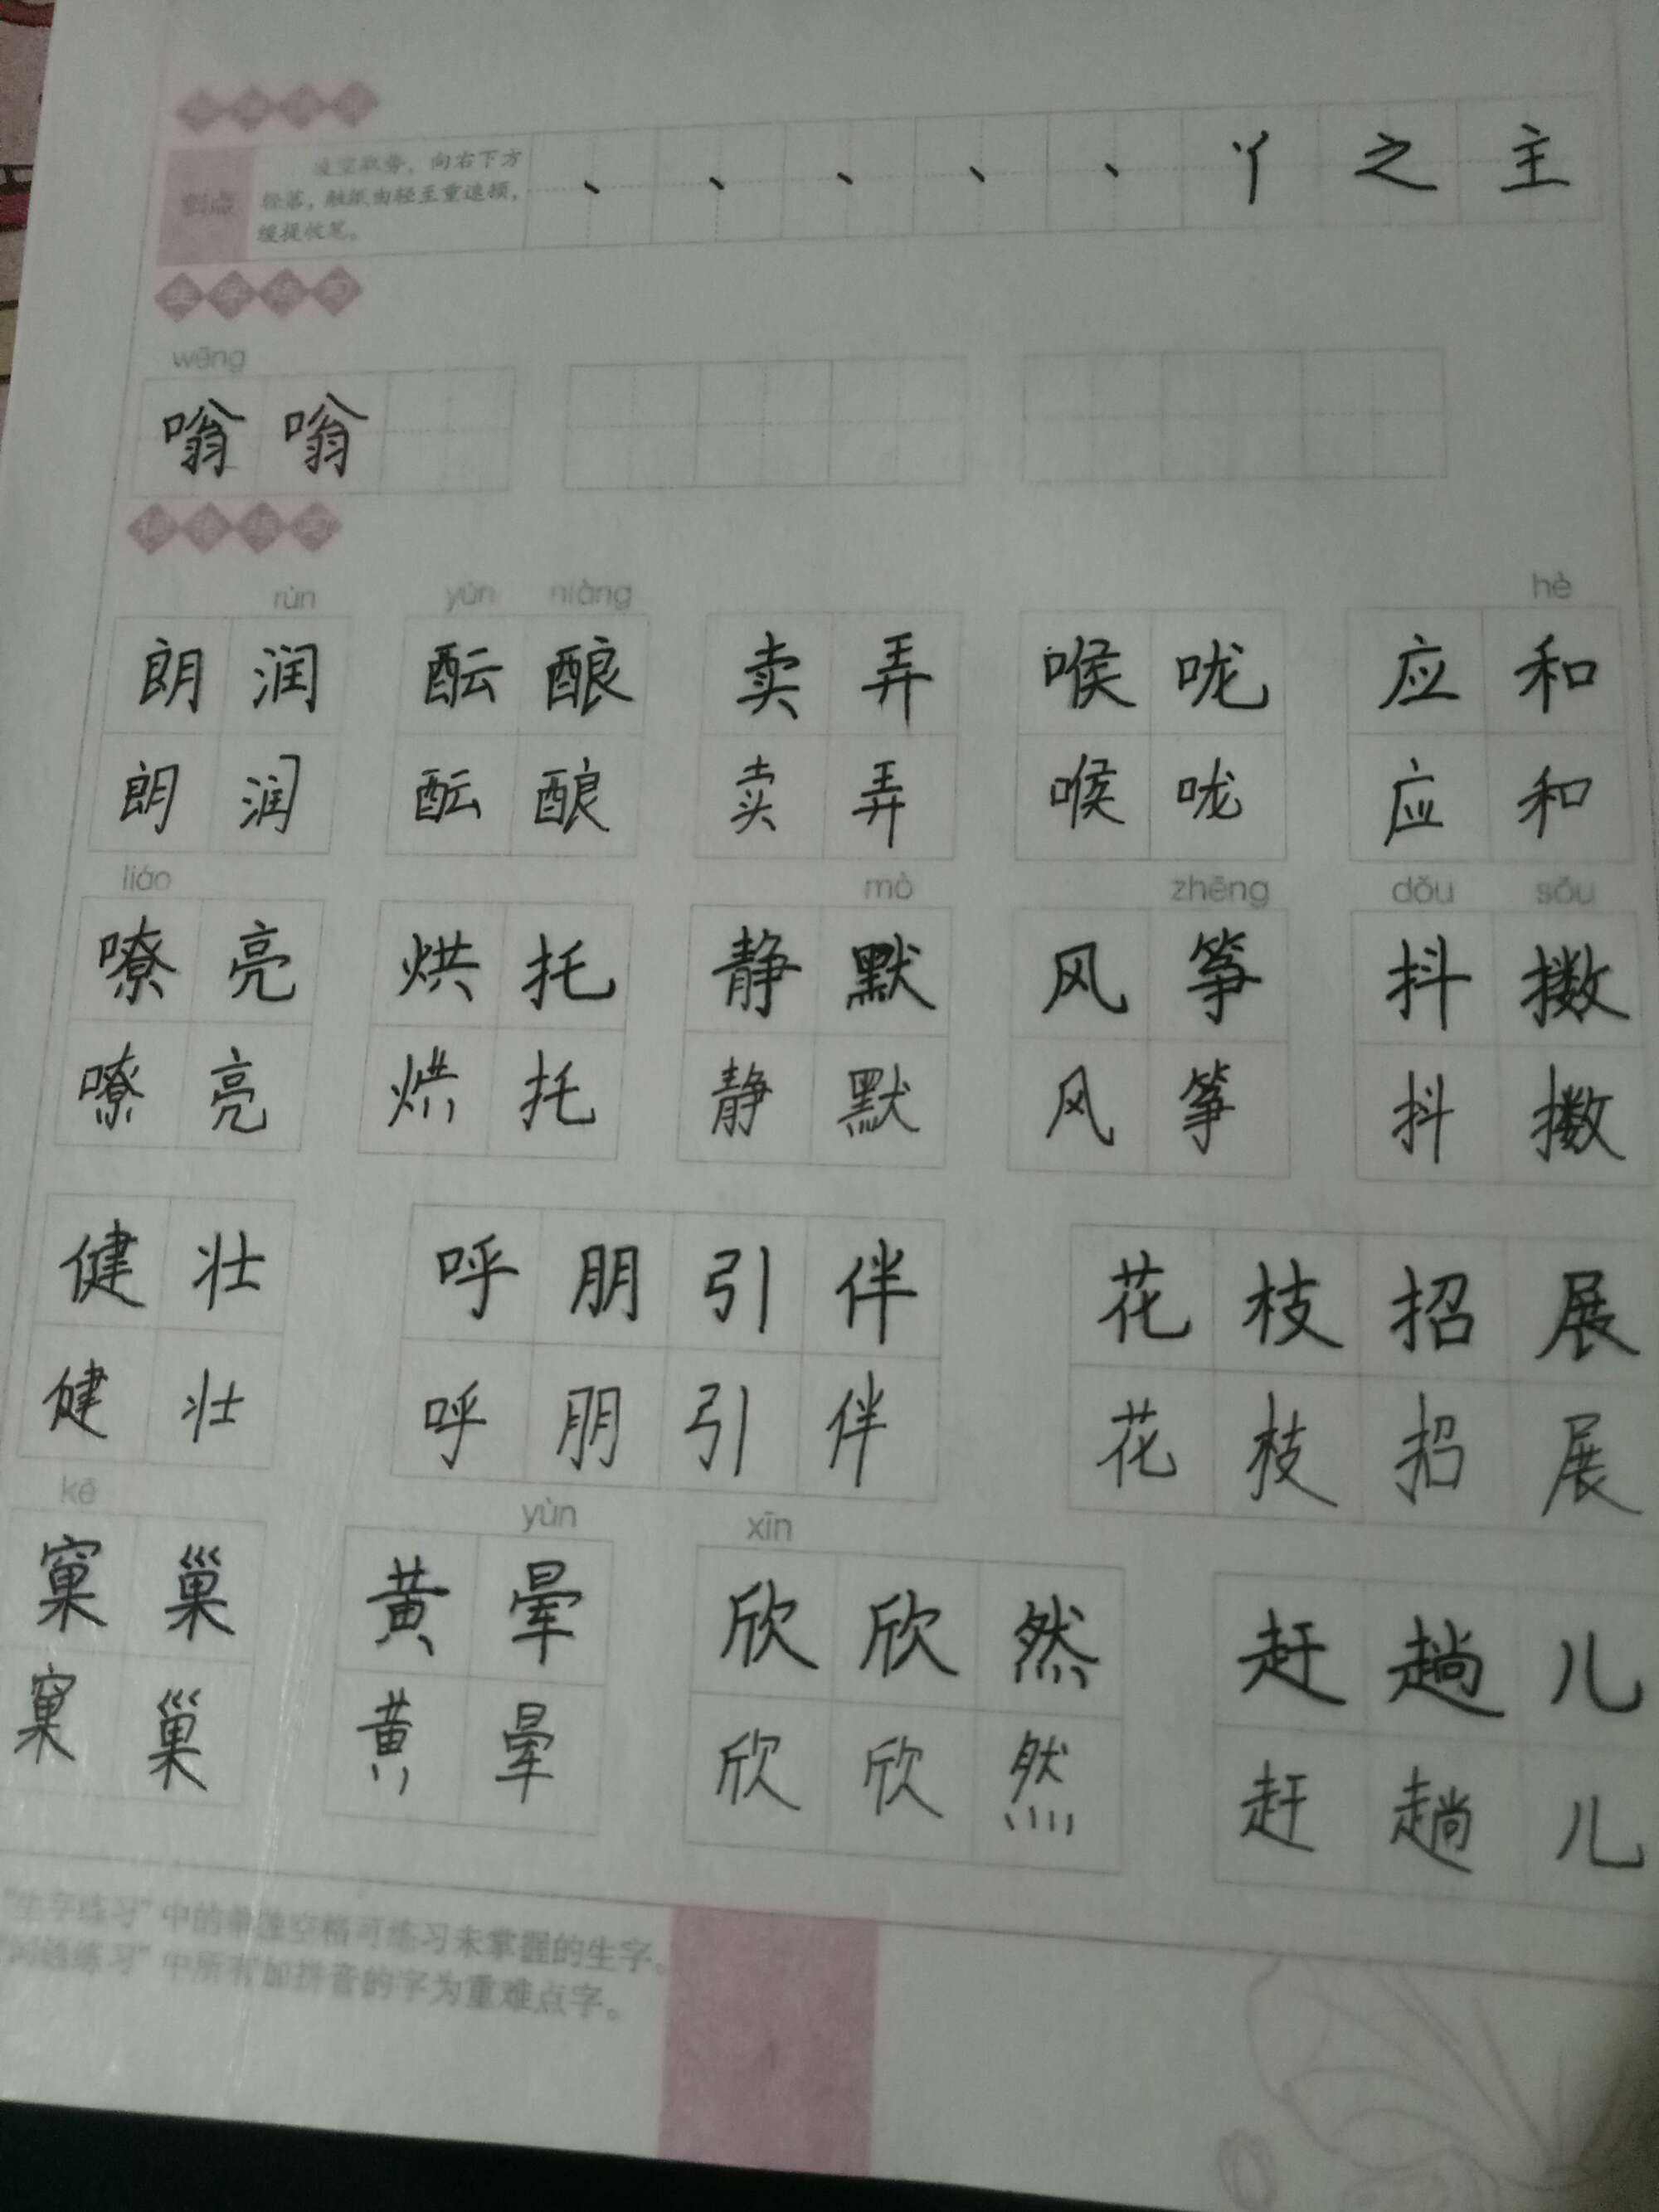 斜点 凌空取势，向右下方 、 、 、 、 、 丫 之 主
轻落，触纸由轻至重速顿，
缓提收笔。
wēng
嗡 嗡
rùn yùn niàng hè
朗 润 酝 酿 卖 弄 喉 咙 应 和
朗 润 酝 酿 卖 弄 喉 咙 应 和
liáo mò zhēng dǒu sǒu
嘹 亮 烘 托 静 默 风 筝 抖 擞
嘹 亮 烘 托 静 默 风 筝 抖 擞
健 壮 呼 朋 引 伴 花 枝 招 展
健 壮 呼 朋 引 伴 花 枝 招 展
kē yùn xīn
窠 巢 黄 晕 欣 欣 然 赶 趟 儿
窠 巢 黄 晕 欣 欣 然 赶 趟 儿
“生字练习”中的单独空格可练习未掌握的生字。
“词语练习”中所有加拼音的字为重难点字。